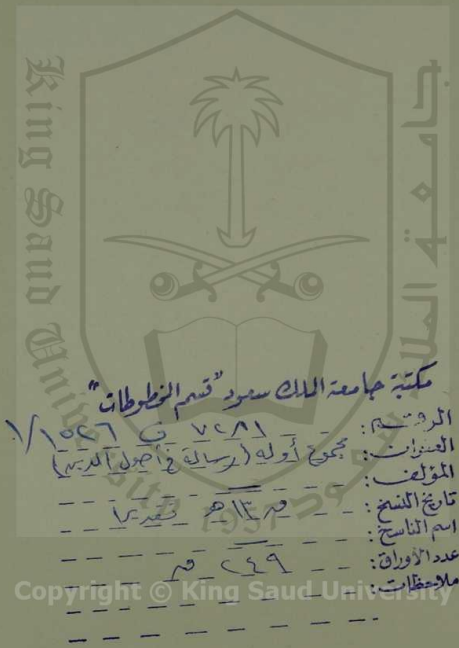 King Saud University
جامعة الملك سعود
1957
مكتبة جامعة الملك سعود "قسم المخطوطات"
الرقم: ٧٢٨١ ف ١٥٢٦/١
العنوان: مجموع أوله (رسالة في أصول الدين)
المؤلف:
تاريخ النسخ: ق ١٣ هـ تقديرا
اسم الناسخ:
عدد الأوراق: ٢٤٩ ق
ملاحظات:
Copyright © King Saud University